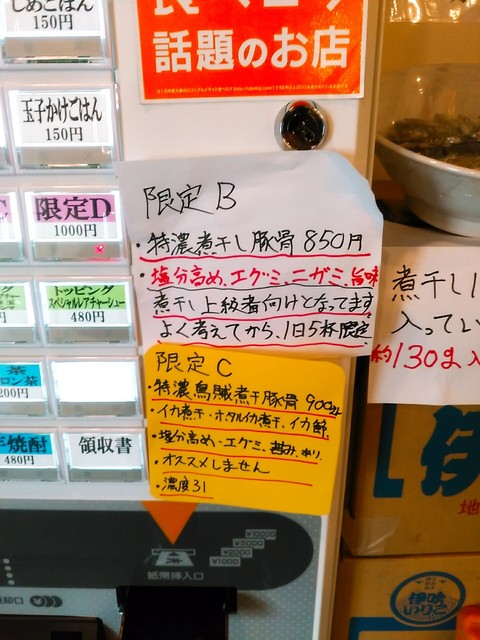 しめごはん
150円
話題のお店
玉子かけごはん
150円
限定D
1000円
トッピング
スペシャルレアチャーシュー
480円
茶
ロン茶
200円
焼酎
480円
領収書
限定B
・特濃煮干し豚骨 850円
・塩分高め、エグミ、ニガミ、旨味
煮干し上級者向けとなってます
よく考えてから、1日5杯限定
限定C
・特濃烏賊煮干豚骨 900
・イカ煮干・ホタルイカ煮干、イカ
・塩分高め・エグミ、
・オススメしません
・濃度31
煮干し
入ってい
約130ま入
¥10000
¥5000
¥2000
¥1000
紙幣挿入口
伊
地
伊吹
いりこ